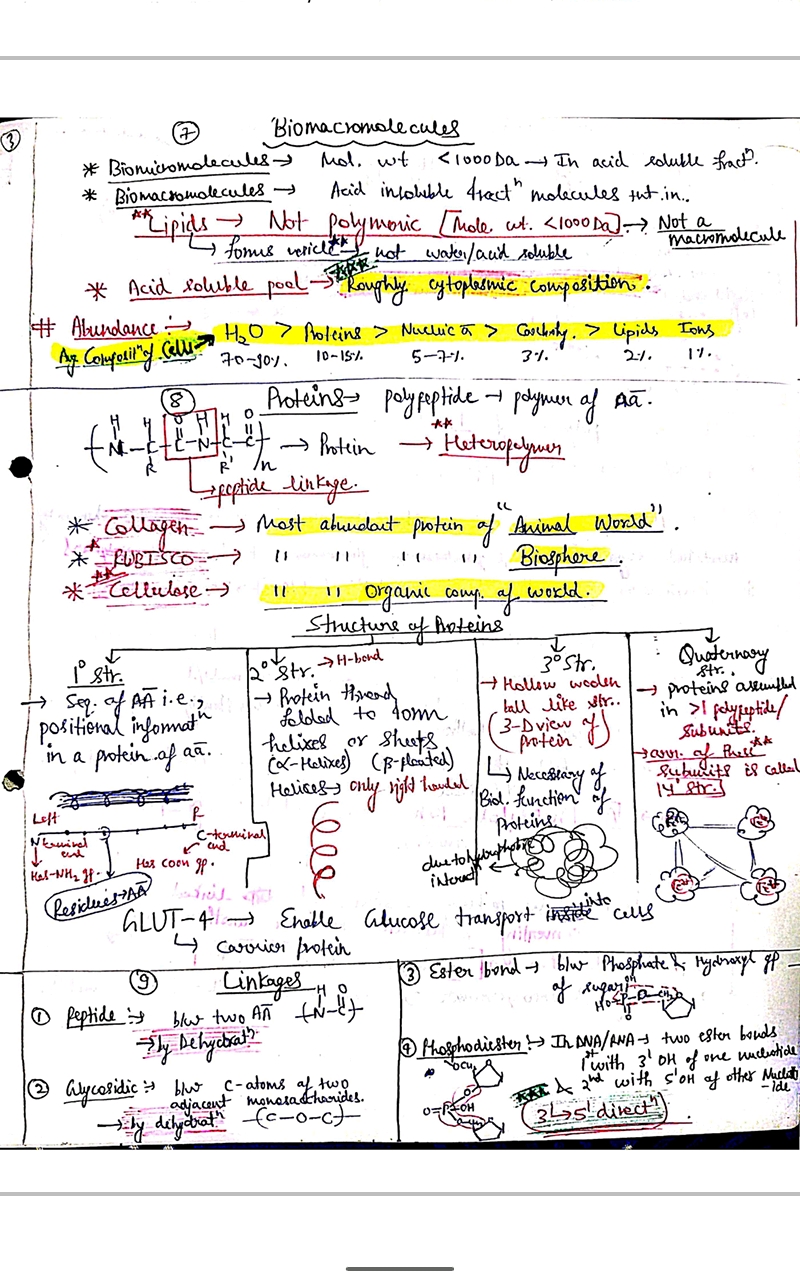 3
7 Biomacromolecules
* Biomicromolecules → Mol. wt <1000 Da → In acid soluble fractⁿ.
* Biomacromolecules → Acid insoluble fractⁿ molecules
**Lipids → Not polymeric [Mole. wt. <1000 Da] → Not a macromolecule
↳ forms vesicle** → not water/acid soluble
* Acid soluble pool → Roughly cytoplasmic composition.
# Abundance :→ H₂O > Proteins > Nucleic a̅ > Carbohy. > Lipids Ions
Ag. Composit.ⁿ of Cells → 70-90%. 10-15% 5-7% 3% 2% 1%.
8 Proteins → polypeptide → polymer of Aa̅.
H H O H H O
(N - C - C - N - C - C)n → Protein → **Heteropolymer
R R'
↳ peptide linkage.
* Collagen → Most abundant protein of "Animal World".
* RUBISCO → " " " " Biosphere.
* Cellulose → " " Organic comp. of world.
Structure of Proteins
1° str.
→ Seq. of AA̅ i.e.,
positional informatⁿ
in a protein of aa̅.
Left R
N terminal end C-terminal end
Has-NH₂ gp. Has COOH gp.
Residues → AA
2° str. → H-bond
→ Protein thread
folded to form
helixes or sheets
(α-Helixes) (β-pleated)
Helices → only right handed
3° Str.
→ Hollow woolen
ball like str..
(3-D view of
protein)
↳ Necessary of
Biol. function of
Proteins.
due to hydrophobic
interact
Quaternary
str..
→ proteins assembled
in >1 polypeptide/
subunits.
→ arrn. of these**
subunits is called
4° str.
GLUT-4 → Enable Glucose transport into cells
↳ carrier protein
9 Linkages
① Peptide :→ b/w two AA̅ H O (N-C)
→ by Dehydratⁿ
② Glycosidic :→ b/w C-atoms of two
adjacent monosaccharides.
→ by dehydratⁿ (C-O-C)
③ Ester bond → b/w Phosphate & Hydroxyl gp
of sugar OH
HO-P-O-CH₂
O
④ Phosphodiester :→ In DNA/RNA → two ester bonds
1st with 3' OH of one nucleotide
& 2nd with 5' OH of other Nucleotide
O=P-OH
*** 3'→5' directⁿ.